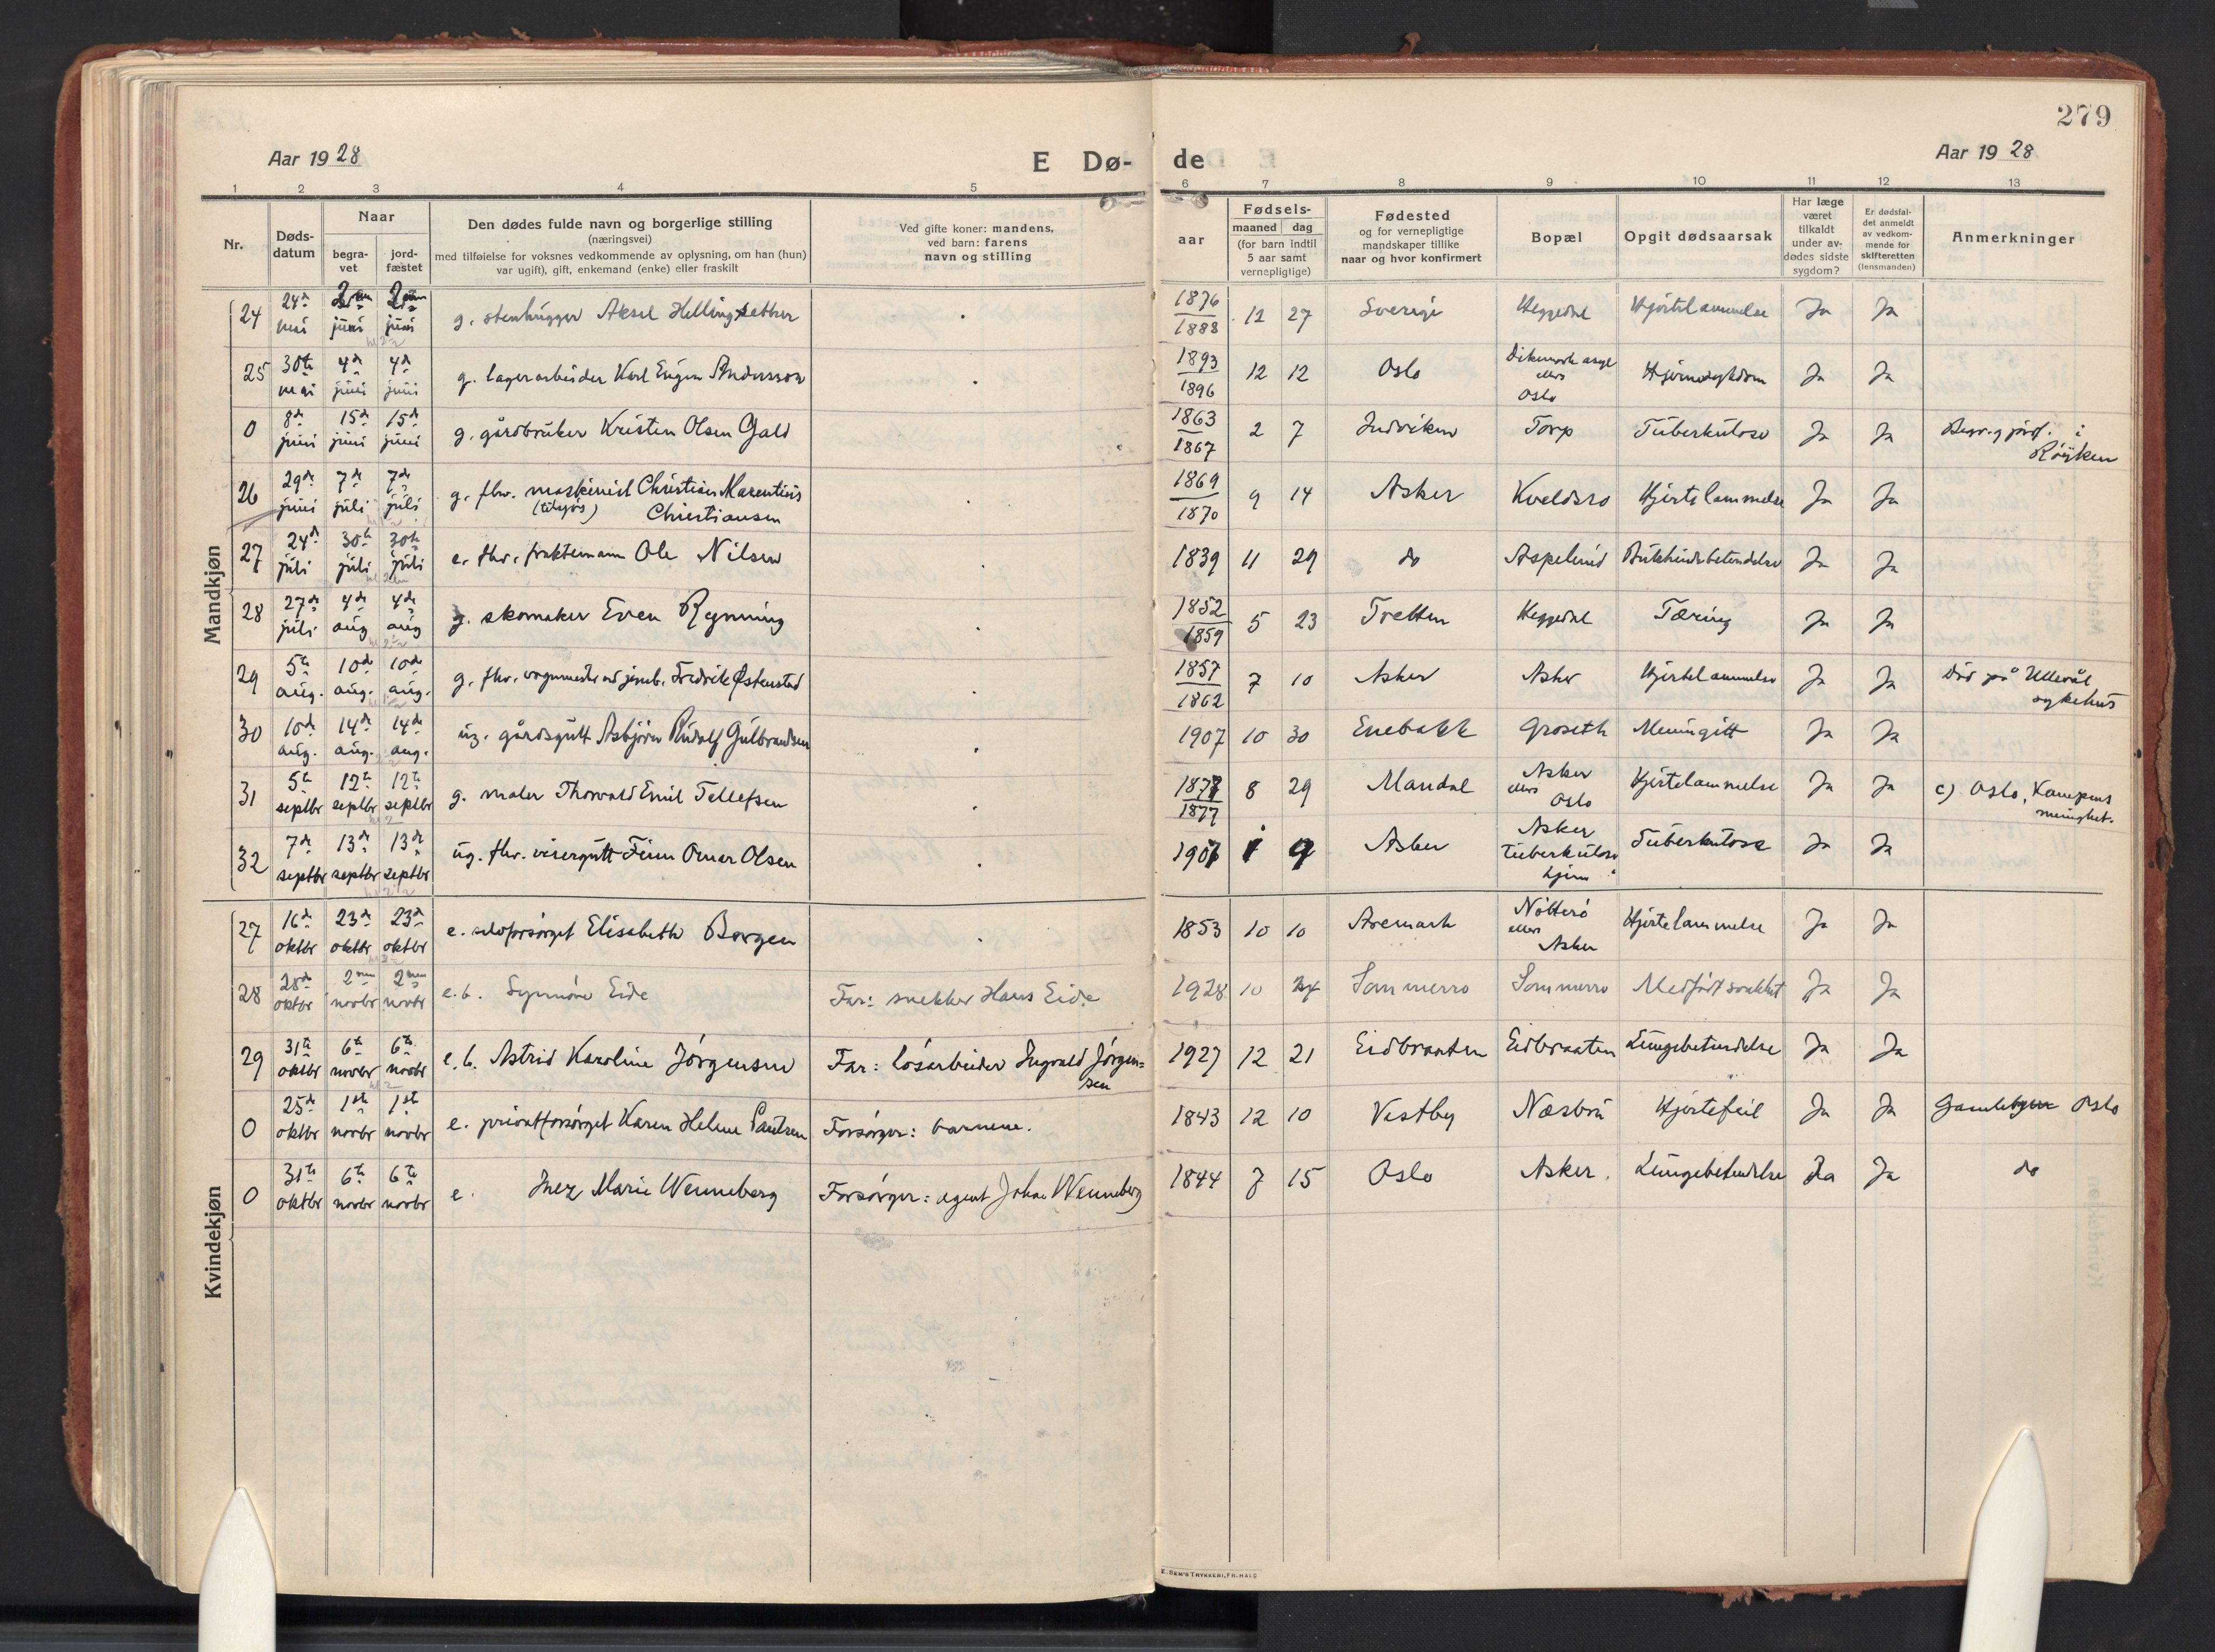 279
Aar 1928
E Dø-
de
Aar 1928
1 2 3 4 5 6 7 8 9 10 11 12 13
Nr.
Døds-
datum
Naar
begra-
vet
jord-
fæstet
Den dødes fulde navn og borgerlige stilling
(næringsvei)
med tilføielse for voksnes vedkommende av oplysning, om han (hun)
var ugift), gift, enkemand (enke) eller fraskilt
Ved gifte koner: mandens,
ved barn: farens
navn og stilling
Fødsels-
aar
maaned dag
(for barn indtil
5 aar samt
vernepligtige)
Fødested
og for vernepligtige
mandskaper tillike
naar og hvor konfirmert
Bopæl
Opgit dødsaarsak
Har læge
været
tilkaldt
under av-
dødes sidste
sygdom?
Er dødsfal-
det anmeldt
av vedkom-
mende for
skifteretten
(lensmanden)
Anmerkninger
Mandkjøn
24 24de mai 2nen juni 2nen juni g. stenhugger Aksel Hellingsæther 1876 1888 12 27 Sverige Heggedal Hjertelammelse Ja Ja
25 30te mai 4de juni 4de juni g. lagerarbeider Karl Eugen Andersson 1893 1896 12 12 Oslo Dikemark asyl ellers Oslo Hjernesykdom Ja Ja
0 8de juni 15de juni 15de juni g. gårdbruker Kristen Olsen Gald 1863 1867 2 7 Indviken Torp Tuberkulose Ja Ja Begr. g jordf. i Røyken
26 29de juni 7de juli 7de juli g. fhv. maskinist (tilsjøs) Christian Marentius Christiansen 1869 1870 9 14 Asker Kveldsro Hjertelammelse Ja Ja
27 24de juli 30te juli 30te juli e. fhv. fraktemann Ole Nilsen 1839 11 29 do Aspelund Bukhindebetendelse Ja Ja
28 27de juli 4de aug 4de aug g. skomaker Even Rynning 1852 1859 5 23 Tretten Heggedal Tæring Ja Ja
29 5te aug. 10de aug. 10de aug. g. fhv. vognmester ved jernb. Fredrik Østenstad 1857 1862 7 10 Asker Asker Hjertelammelse Ja Ja Død på Ullevål sykehus
30 10de aug. 14de aug. 14de aug. ug. gårdsgutt Asbjørn Rudolf Gulbrandsen 1907 10 30 Enebakk Groseth Meningitt Ja Ja
31 5te septbr 12te septbr 12te septbr g. maler Thorvald Emil Tellefsen 1877 1877 8 29 Mandal Asker ellers Oslo Hjertelammelse Ja Ja c) Oslo, Kampens menighet.
32 7de septbr 13de septbr 13de septbr ug. fhv. visergutt Finn Omar Olsen 1907 1 9 Asker Asker Tuberkulosehjem Tuberkulose Ja Ja
Kvindekjøn
27 16de oktbr 23de oktbr 23de oktbr e. selvforsørget Elisabeth Borgen 1853 10 10 Aremark Nøtterø ellers Asker Hjertelammelse Ja Ja
28 28de oktbr 2nen novbr 2nen novbr e.b. Synnøve Eide Far: snekker Hans Eide 1928 10 Sommerro Sommerro Medfødt svakhet Ja Ja
29 31te oktbr 6te novbr 6te novbr e.b. Astrid Karoline Jørgensen Far: løsarbeider Ingvald Jørgen= sen 1927 12 21 Eidbraaten Eidbraaten Lungebetendelse Ja Ja
0 25de oktbr 1ste novbr 1ste novbr e. privatforsørget Karen Helene Paulsen Forsørger: barnene. 1843 12 10 Vestby Næsbru Hjertefeil Ja Ja Gamlebyen Oslo
0 31te oktbr 6te novbr 6te novbr e. Inez Marie Wenneberg Forsørger: agent Johan Wenneberg 1844 7 15 Oslo Asker. Lungebetendelse Ja Ja do
E. SEM'S TRYKKERI, FR.HALD